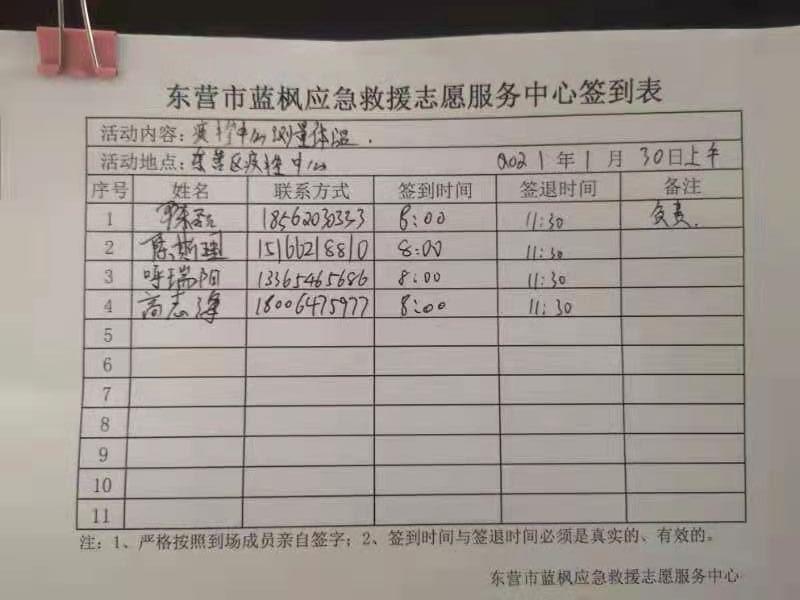 东营市蓝枫应急救援志愿服务中心签到表
活动内容：疾控中心测量体温.
活动地点：东营区疾控中心 2021年1月30日上午
序号 姓名 联系方式 签到时间 签退时间 备注
1 18562030333 8:00 11:30 负责.
2 15166218810 8:00 11:30
3 呼瑞阳 13365465686 8:00 11:30
4 高志海 18006475977 8:00 11:30
5
6
7
8
9
10
11
注：1、严格按照到场成员亲自签字；2、签到时间与签退时间必须是真实的、有效的。
东营市蓝枫应急救援志愿服务中心